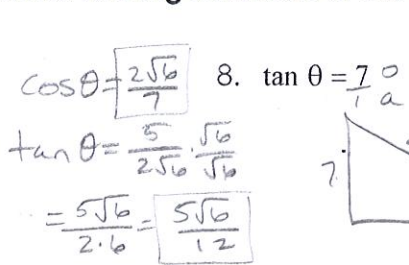 cos θ = 2√6/7
8. tan θ = 7/1 o/a
tan θ = 5/2√6 · √6/√6
7
= 5√6/2·6 = 5√6/12